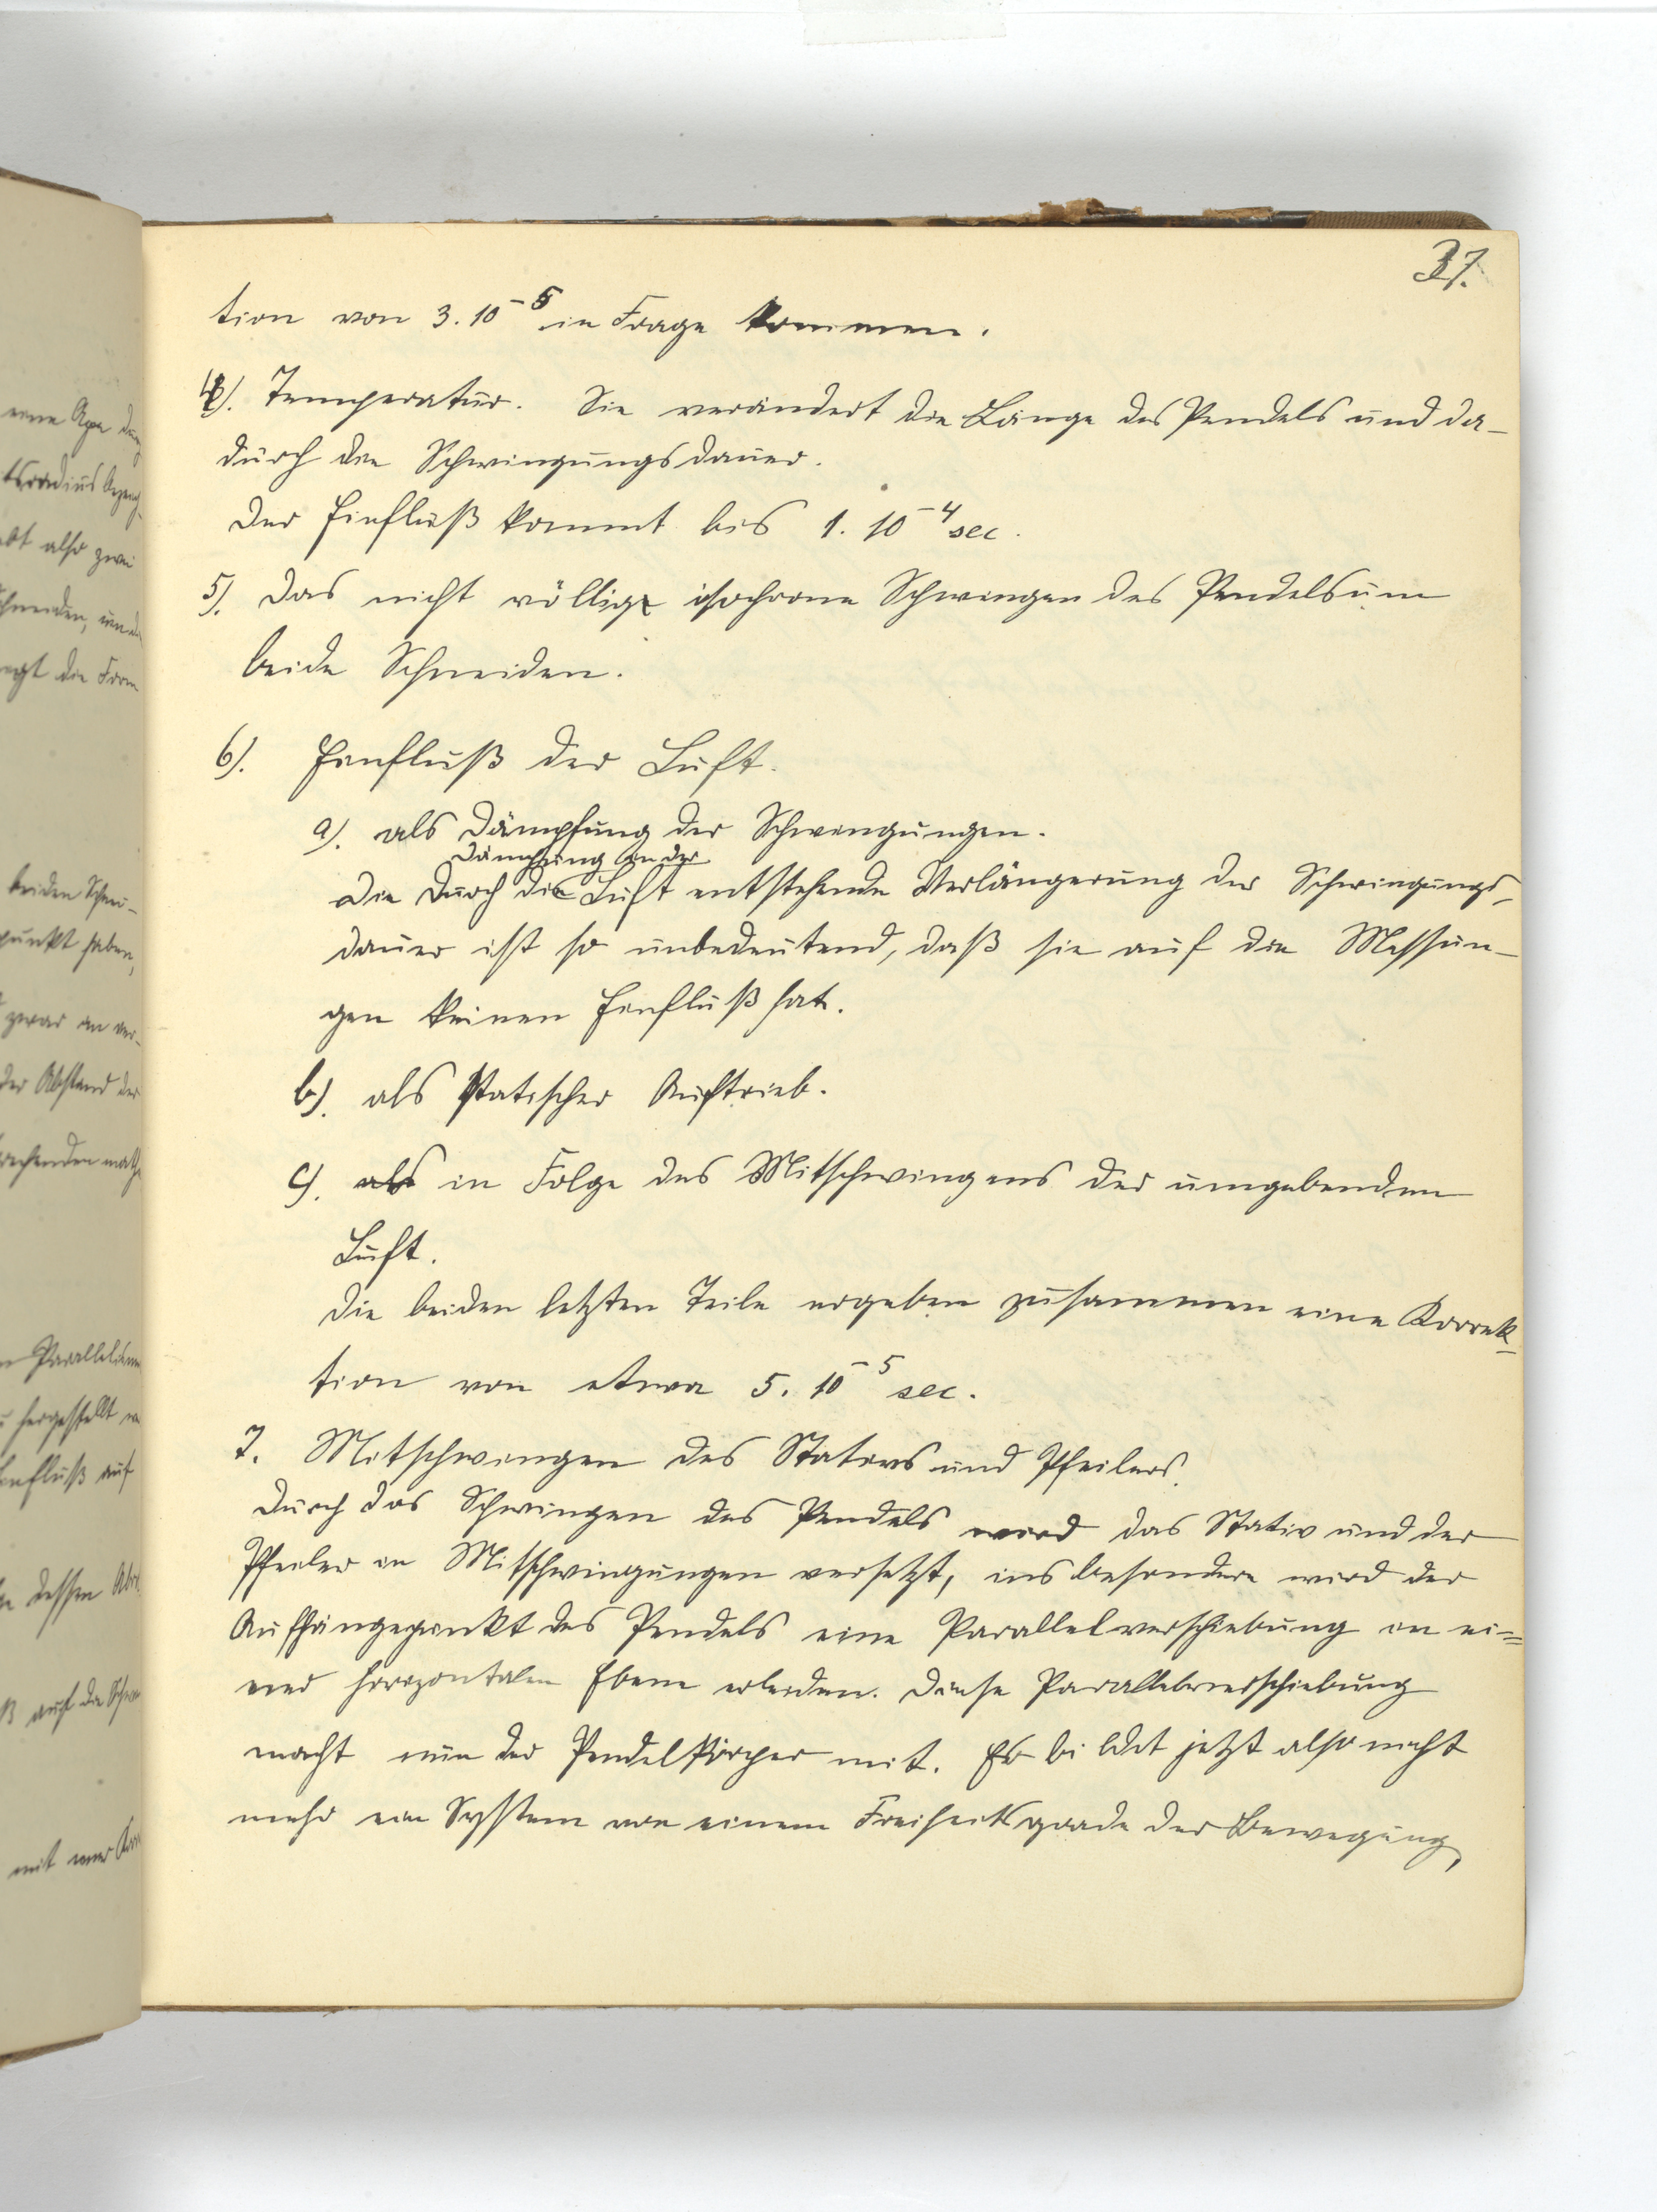 37.
tion von 3. 10⁻⁵ in Frage kommen.
4). Temperatur. Sie verändert die Länge des Pendels und da-
durch die Schwingungsdauer.
Der Einfluß kommt bis 1. 10⁻⁴ sec.
5). Das nicht völlig isochrone Schwingen des Pendels um
beide Schneiden.
6). Einfluß der Luft.
a). als Dämpfung der Schwingungen.
Dämpfung in der
Die durch die Luft entstehende Verlängerung der Schwingungs-
dauer ist so unbedeutend, daß sie auf die Messun-
gen keinen Einfluß hat.
b). als statischer Auftrieb.
c). als in Folge des Mitschwingens der umgebenden
Luft.
Die beiden letzten Teile ergeben zusammen eine Korrek-
tion von etwa 5. 10⁻⁵ sec.
7. Mitschwingen des Stativs und Pfeilers.
Durch das Schwingen des Pendels wird das Stativ und der
Pfeiler in Mitschwingungen versetzt, insbesondere wird der
Aufhängepunkt des Pendels eine Parallelverschiebung in ei-
ner horizontalen Ebene erleiden. Diese Parallelverschiebung
macht nun der Pendelkörper mit. Er bildet jetzt also nicht
mehr ein System von einem Freiheitsgrade der Bewegung,
eine
also zwei
Schneiden, um
die Form
beiden Schnei-
punkt haben,
zwar in ver-
der Abstand der
hergestellt
Einfluß auf
dessen
auf die
mit einer